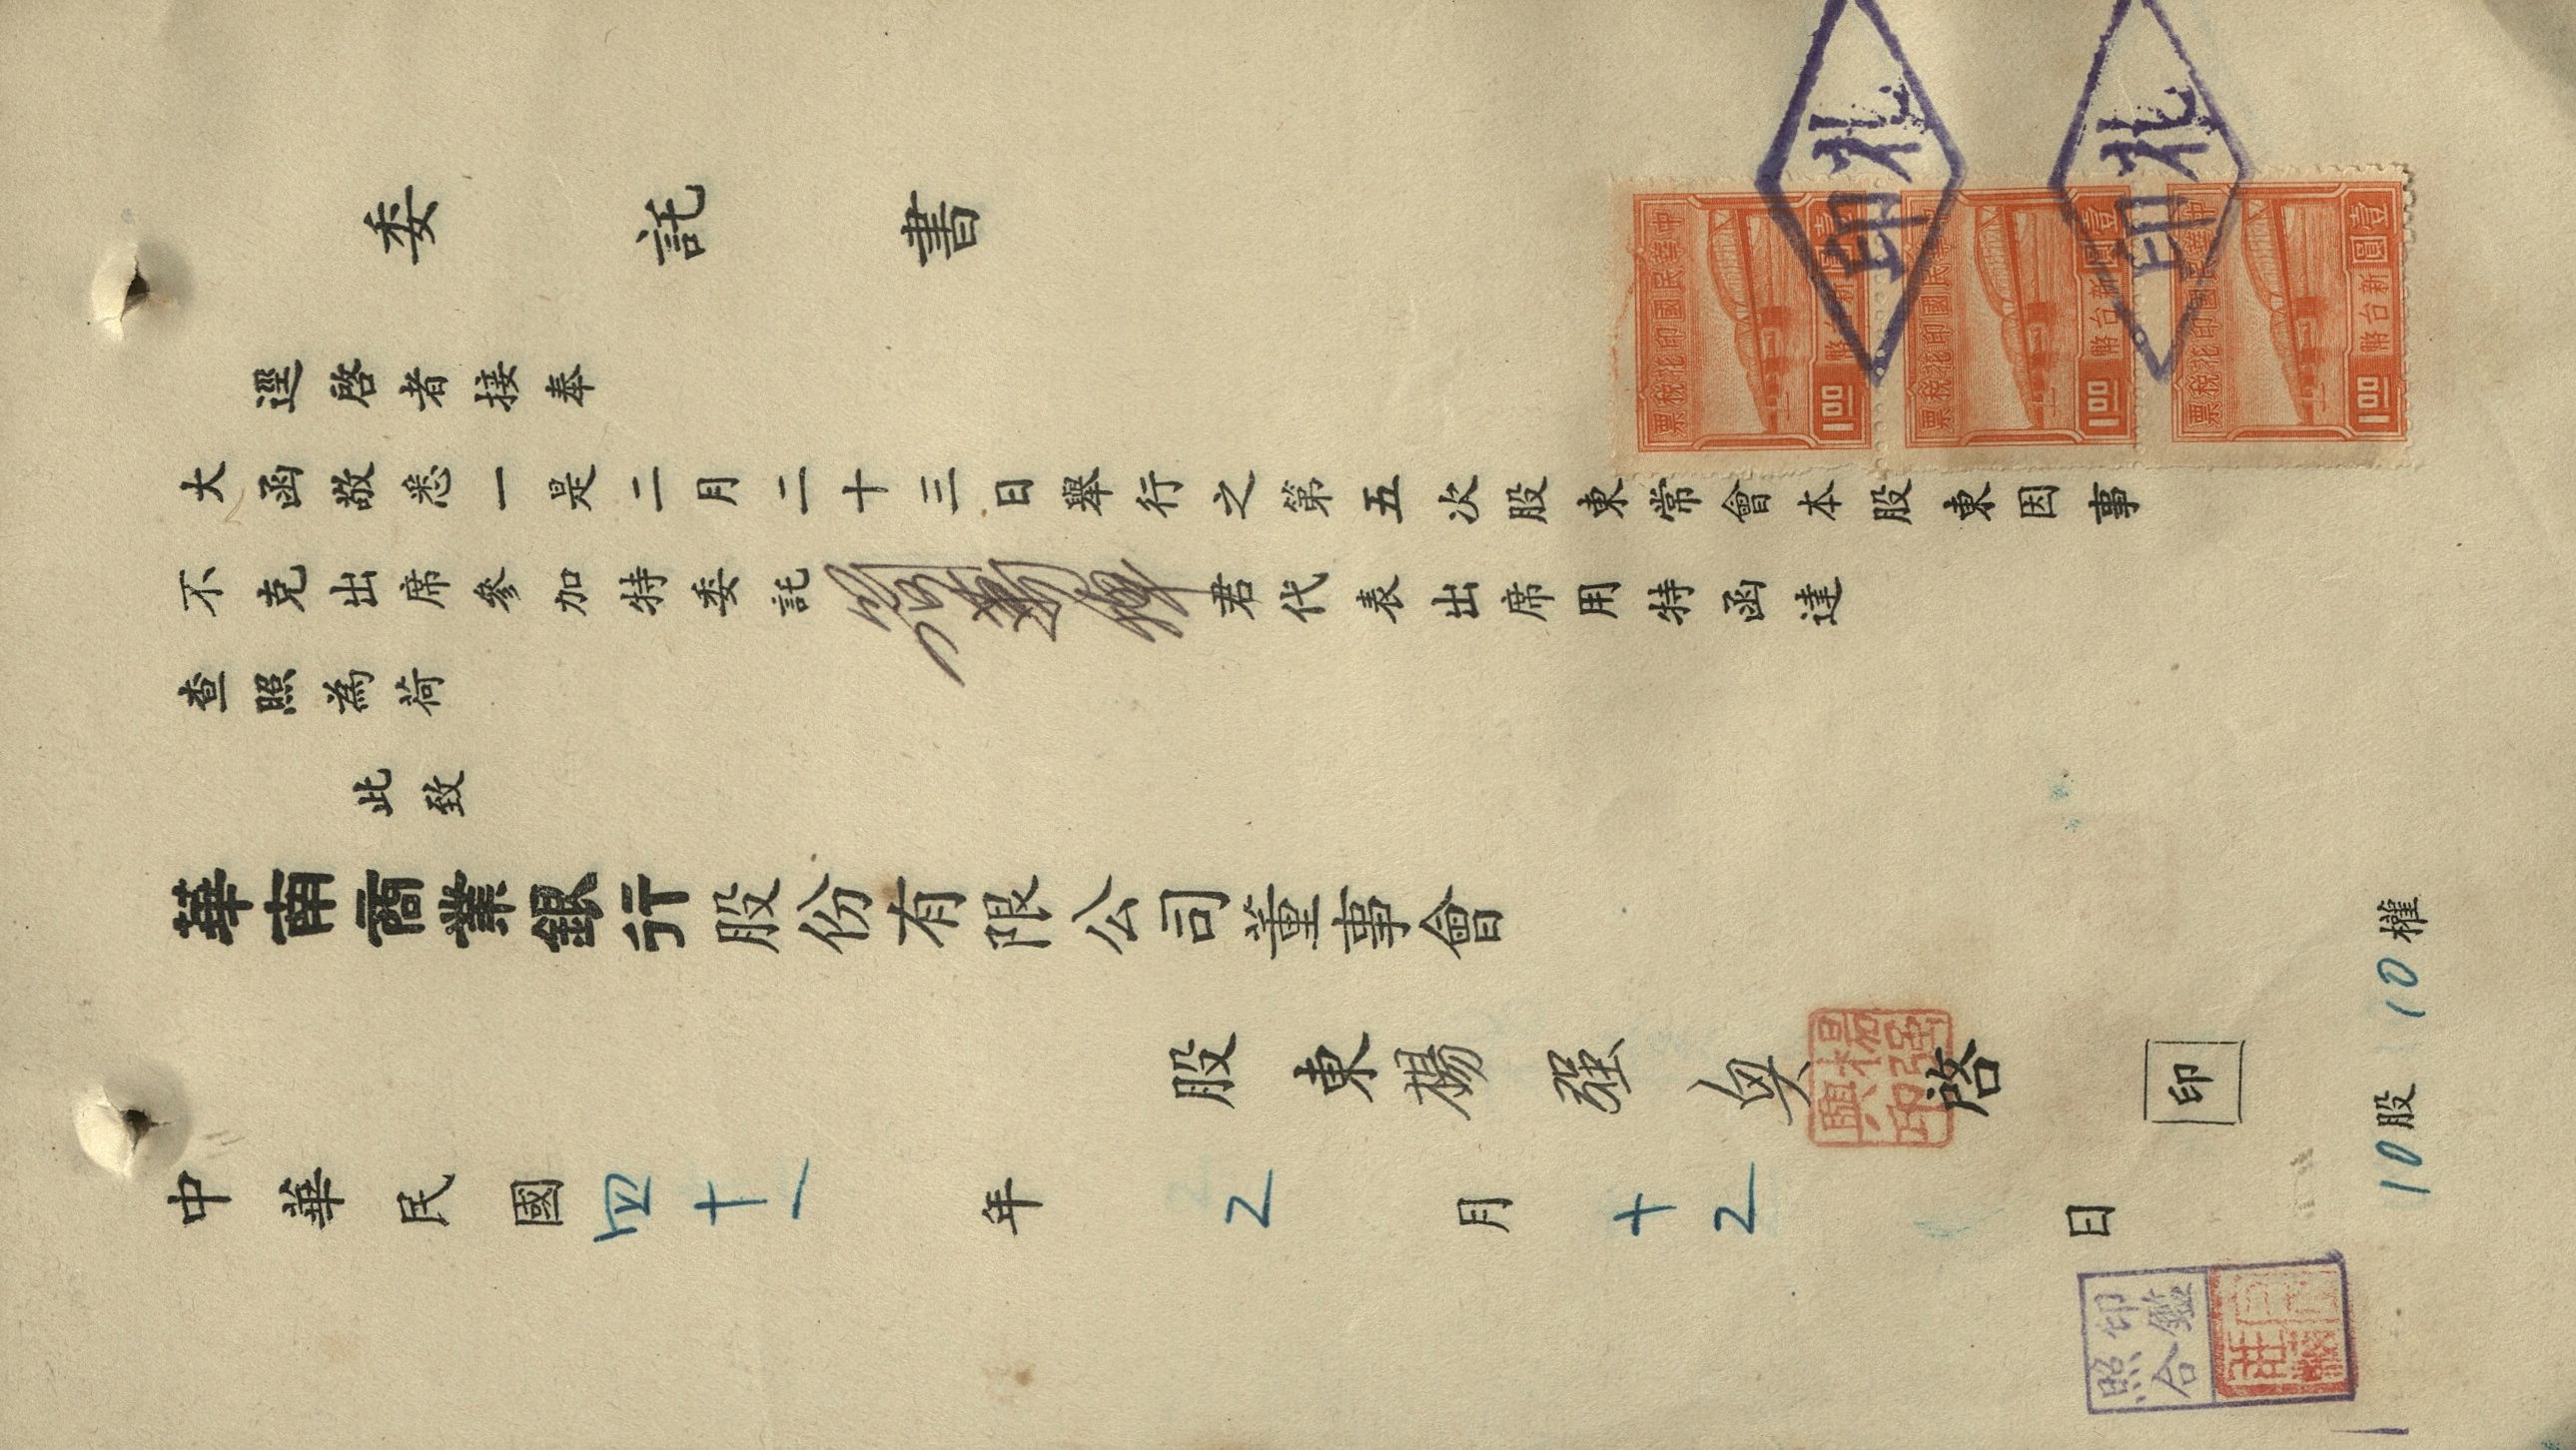 委託書
中華民國印花稅票
壹圓新台幣 1.00
中華民國印花稅票
壹圓新台幣 1.00
中華民國印花稅票
壹圓新台幣 1.00
北印
北印
逕啓者接奉
大函敬悉一是二月二十三日舉行之第五次股東常會本股東因事
不克出席參加特委託 君代表出席用特函達
查照為荷
此致
華南商業銀行股份有限公司董事會
股東楊强 啓 印
楊强興印
10股 10權
中華民國四十一年2月十2日
印鑑照合